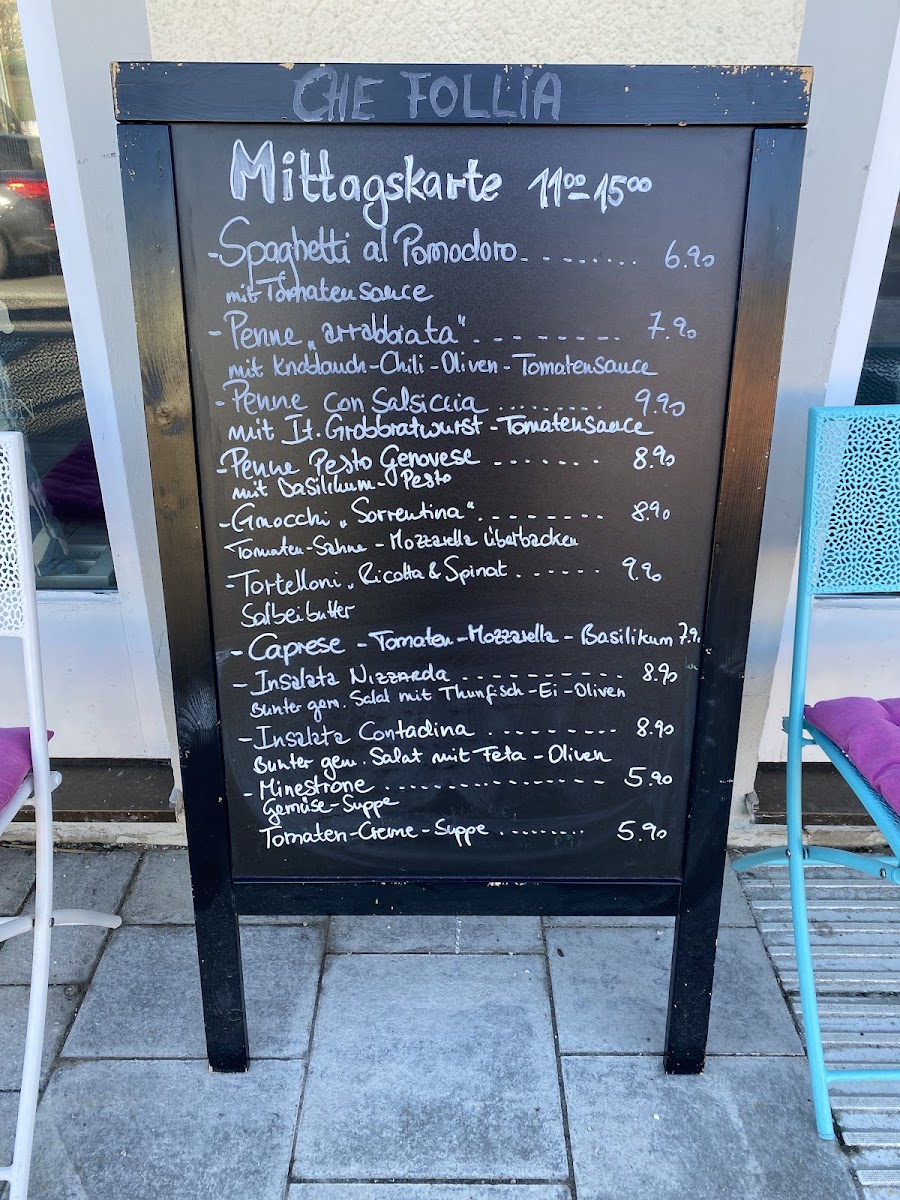 CHE FOLLIA
Mittagskarte 11⁰⁰-15⁰⁰
-Spaghetti al Pomodoro......... 6.90
mit Tomatensauce
-Penne „arrabbiata“ --------- 7.90
mit Knoblauch-Chili-Oliven-Tomatensauce
-Penne con Salsiccia ......... 9.90
mit It. Grobbratwurst-Tomatensauce
-Penne Pesto Genovese ------- 8.90
mit Basilikum-Pesto
-Gnocchi „Sorrentina“. ------- 8.90
Tomaten-Sahne-Mozzarella überbacken
-Tortelloni „Ricotta & Spinat ------ 9.90
Salbeibutter
-Caprese -Tomaten-Mozzarella-Basilikum 7.9
-Insalata Nizzarda ----------- 8.90
Bunter gem. Salat mit Thunfisch-Ei-Oliven
-Insalata Contadina --------- 8.90
Bunter gem. Salat mit Feta-Oliven
-Minestrone ................ 5.90
Gemüse-Suppe
Tomaten-Creme-Suppe ........ 5.90